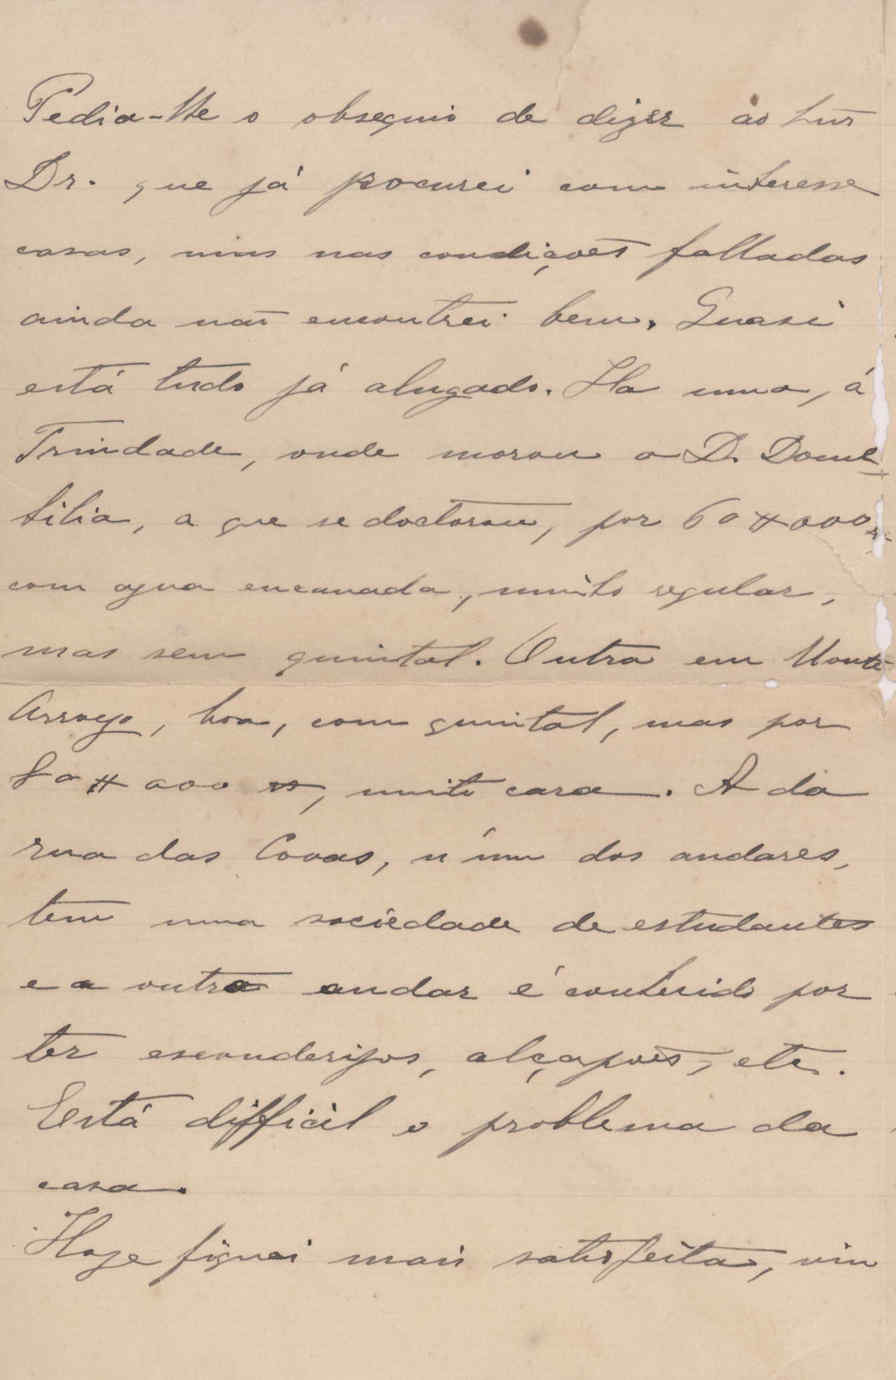 Pedia-lhe o obsequio de dizer ao Snr
Dr. que já procurei com interesse
casas, mas nas condições falladas
ainda não encontrei bem. Quasi
está tudo já alugado. Ha uma, á
Trindade, onde morou a D. Dome-
tilia, a que se doctorou, por 60#000 rs
com agua encanada, muito regular,
mas sem quintal. Outra em Monte
Arroyo, boa, com quintal, mas por
80#000 rs, muito cara. A da
rua das Covas, n'um dos andares,
tem uma sociedade de estudantes
e a outro andar é conhecido por
ter esconderijos, alçapões, etc.
Está difficil o problema da
casa.
Hoje fiquei mais satisfeita, vim